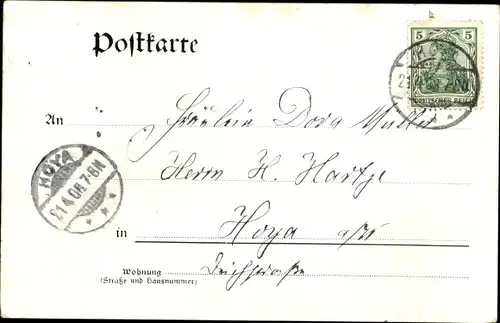 5 5
DEUTSCHES REICH
Postkarte
An Fräulein Dora Müller
HOYA
21.4.06.7-8N
Herrn H. Hartje
in Hoya a/W
Wohnung Deichstraße
(Straße und Hausnummer)